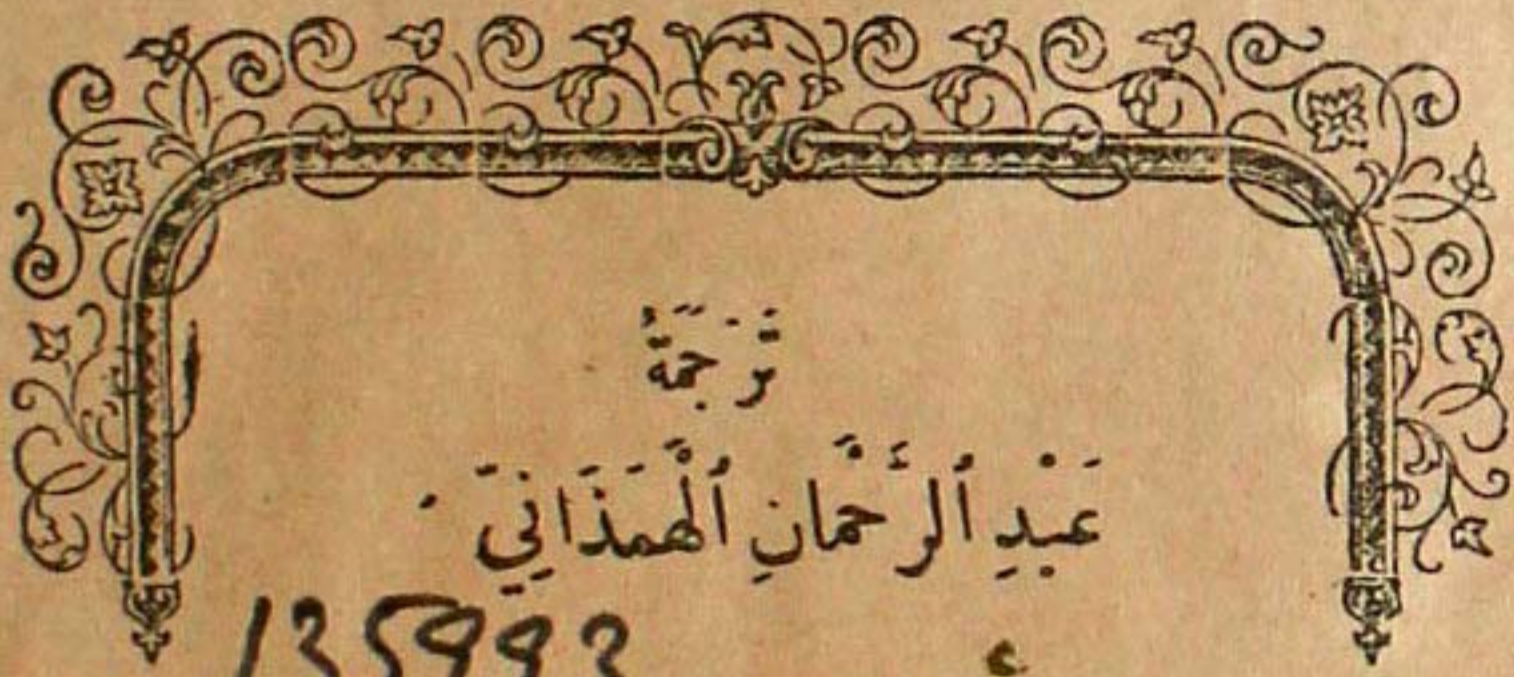 تَرْجَمَةُ
عَبْدِ ٱلرَّحْمَانِ ٱلْهَمَذَانِيّ
135993